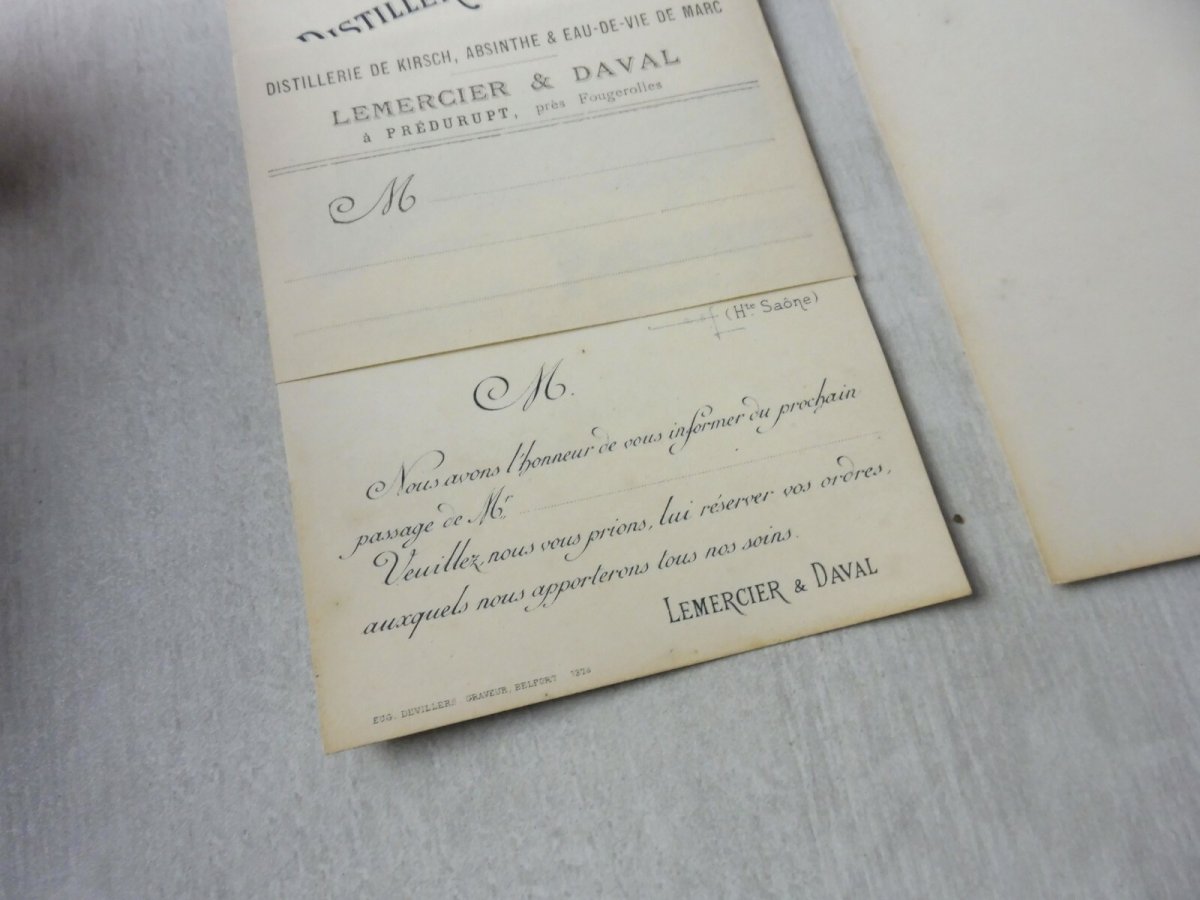 DISTILLERIE DE KIRSCH, ABSINTHE & EAU-DE-VIE DE MARC
LEMERCIER & DAVAL
à PRÉDURUPT, près Fougerolles
M
(Hte Saône)
M.
Nous avons l'honneur de vous informer du prochain
passage de Mr
Veuillez, nous vous prions, lui réserver vos ordres,
auxquels nous apporterons tous nos soins.
LEMERCIER & DAVAL
EUG. DEVILLERS, GRAVEUR, BELFORT